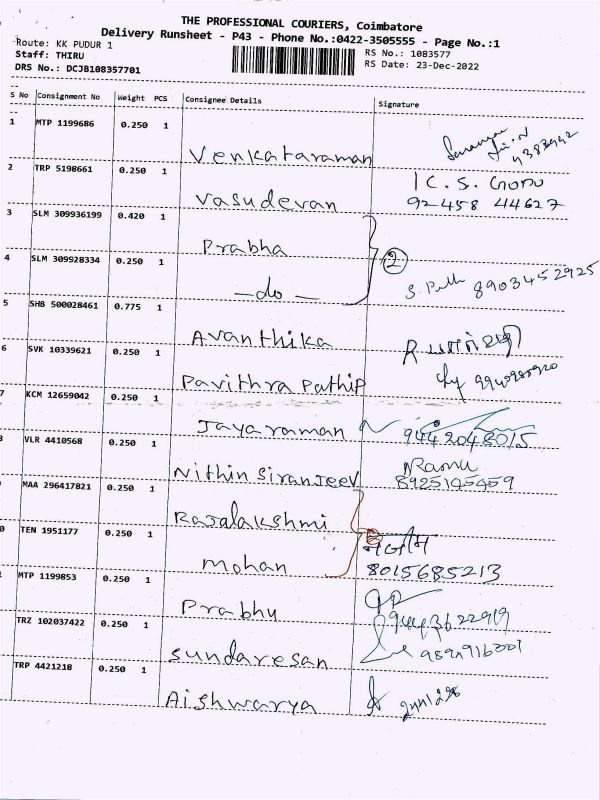 THE PROFESSIONAL COURIERS, Coimbatore
Delivery Runsheet - P43 - Phone No.:0422-3505555 - Page No.:1
Route: KK PUDUR 1
Staff: THIRU
DRS No.: DCJB108357701
RS No.: 1083577
RS Date: 23-Dec-2022
S No Consignment No Weight PCS Consignee Details Signature
1 MTP 1199686 0.250 1 Venkataraman
2 TRP 5198661 0.250 1 Vasudevan
92458 44627
3 SLM 309936199 0.420 1 Prabha
4 SLM 309928334 0.250 1 —do— 2
8903452925
5 SHB 500028461 0.775 1 Avanthika
6 SVK 10339621 0.250 1 Pavithra Pathip
7 KCM 12659042 0.250 1 Jayaraman
9442048015
VLR 4410568 0.250 1 Nithin Siranjeev
Ramu
8925145459
MAA 296417821 0.250 1 Rajalakshmi
0 TEN 1951177 0.250 1 Mohan
8015685213
MTP 1199853 0.250 1 Prabhu
TRZ 102037422 0.250 1 Sundaresan
TRP 4421218 0.250 1 Aishwarya